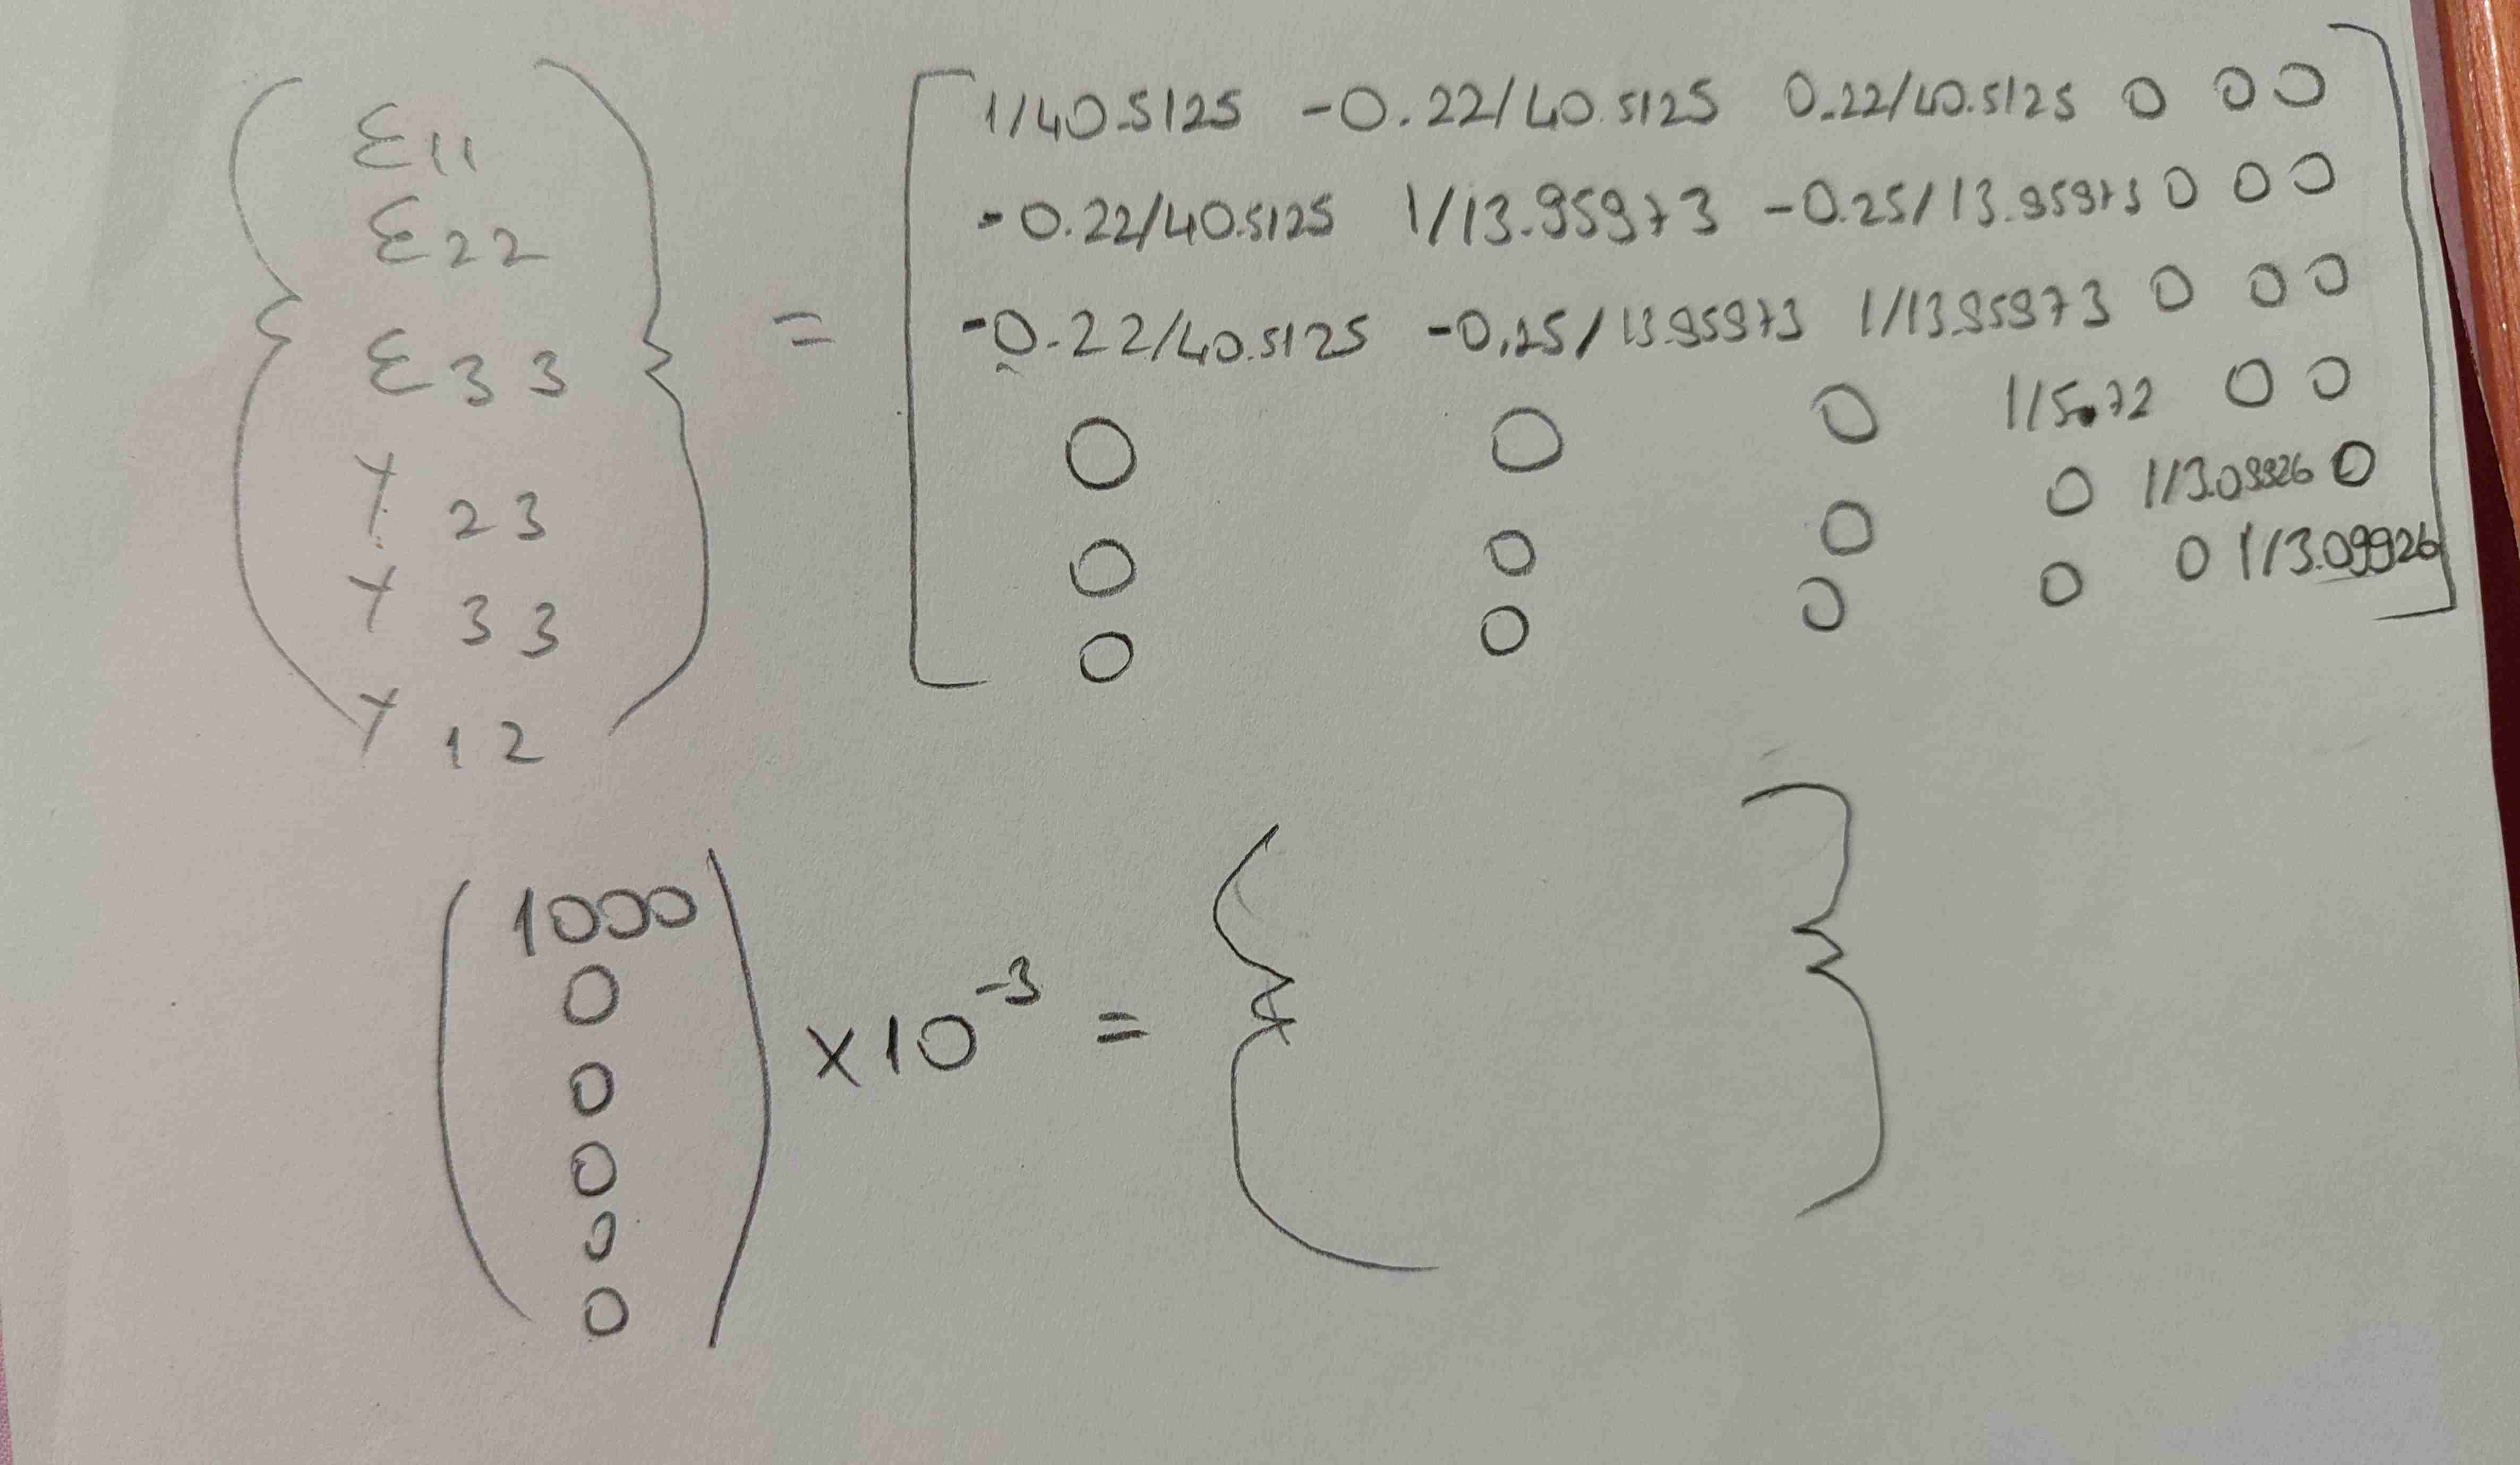 ε11
ε22
ε33
γ23
γ33
γ12
=
1/40.5125 -0.22/40.5125 0.22/40.5125 0 0 0
-0.22/40.5125 1/13.95973 -0.25/13.95973 0 0 0
-0.22/40.5125 -0.25/13.95973 1/13.95973 0 0 0
0 0 0 1/5.72 0 0
0 0 0 0 1/3.09926 0
0 0 0 0 0 1/3.09926
1000
0
0
0
0
0
×10⁻³ =